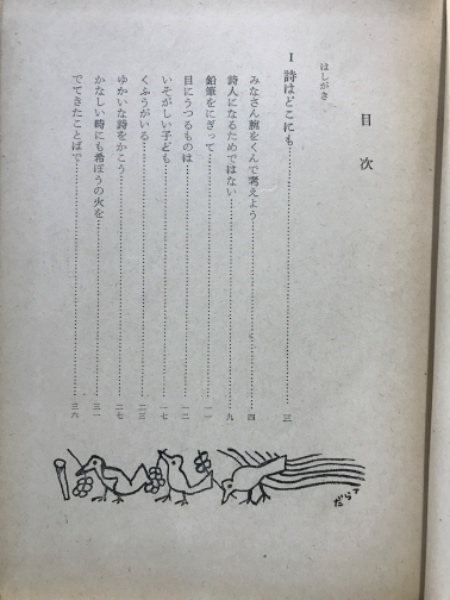 目次
はしがき
I 詩はどこにも……三
みなさん腕をくんで考えよう……四
詩人になるためではない……九
鉛筆をにぎって……一一
目にうつるものは……一二
いそがしい子ども……一七
くふうがいる……二三
ゆかいな詩をかこう……二七
かなしい時にも希ぼうの火を……三一
でてきたことばで……三六